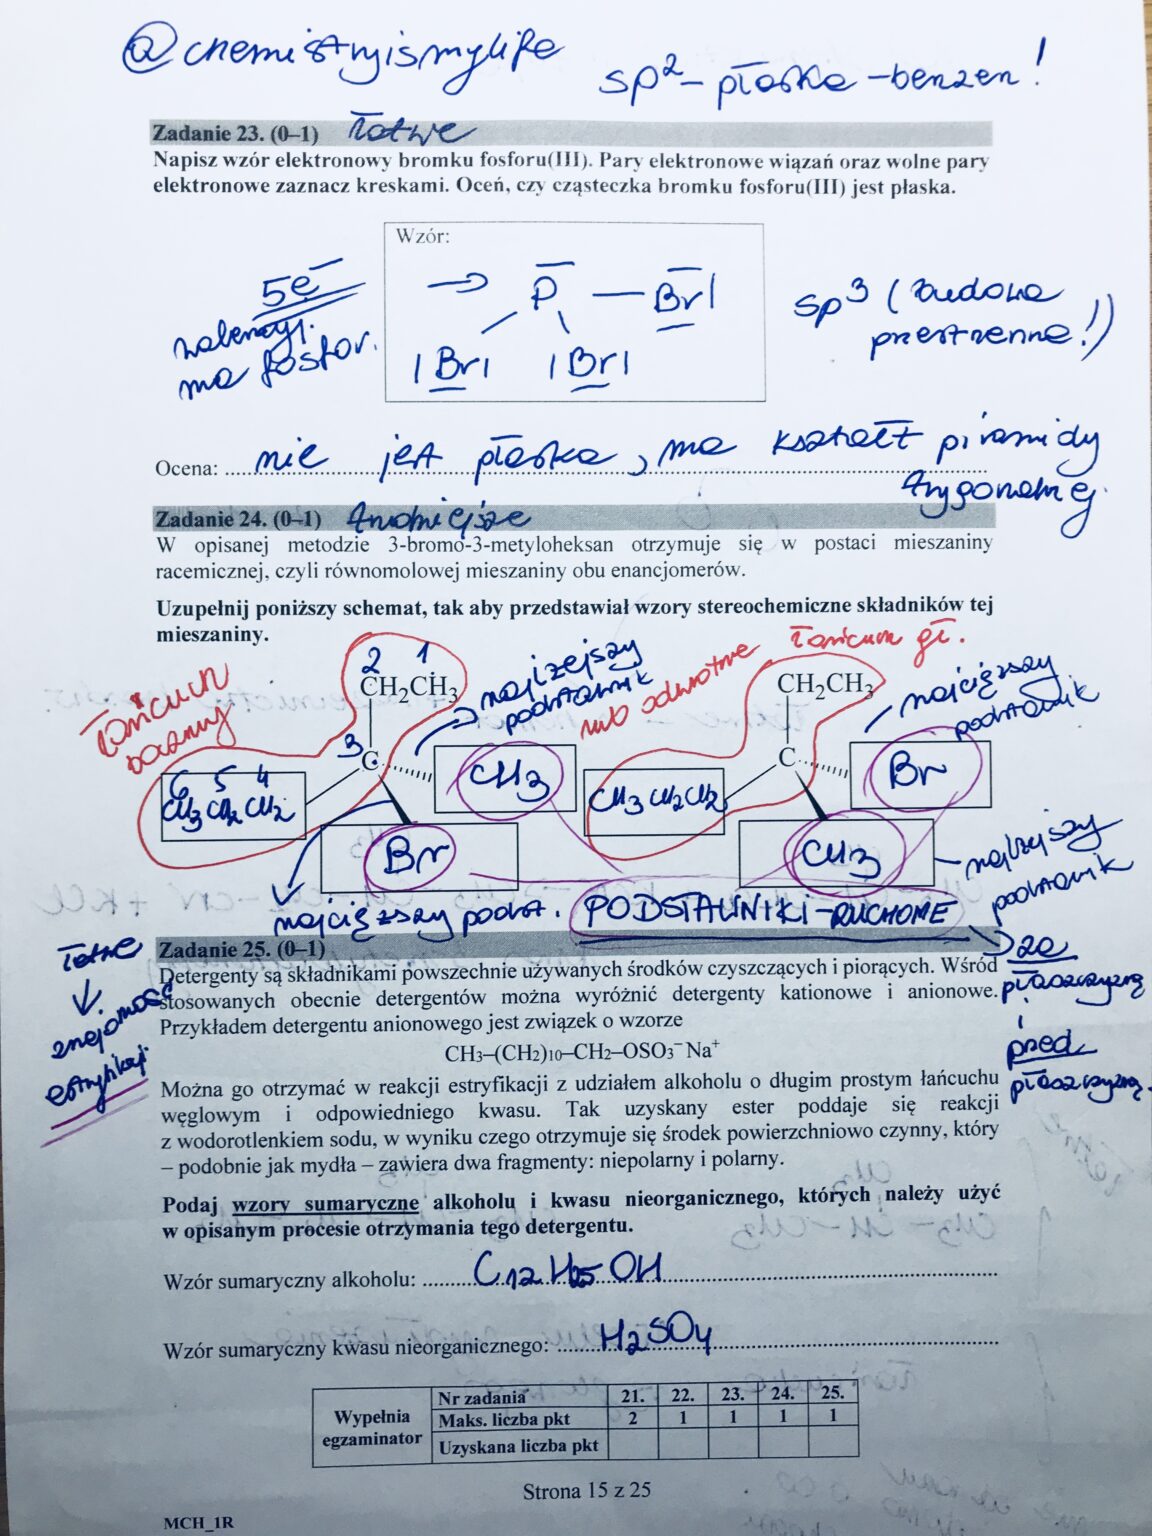 @chemistryismylife
sp²– płaska – benzen!
Zadanie 23. (0–1) łatwe
Napisz wzór elektronowy bromku fosforu(III). Pary elektronowe wiązań oraz wolne pary
elektronowe zaznacz kreskami. Oceń, czy cząsteczka bromku fosforu(III) jest płaska.
Wzór:
5e⁻
walencyj.
ma fosfor.
P — Br
Br Br
sp³ (budowa
przestrzenna!)
Ocena: nie jest płaska, ma kształt piramidy
trygonalnej.
Zadanie 24. (0–1) trudniejsze
W opisanej metodzie 3-bromo-3-metyloheksan otrzymuje się w postaci mieszaniny
racemicznej, czyli równomolowej mieszaniny obu enancjomerów.
Uzupełnij poniższy schemat, tak aby przedstawiał wzory stereochemiczne składników tej
mieszaniny.
łańcuch
boczny
2 1
CH₂CH₃
najlżejszy
podstawnik
lub odwrotnie
łańcuch gł.
CH₂CH₃
najcięższy
podstawnik
3
C
CH₃
C
Br
6 5 4
CH₃CH₂CH₂
CH₃CH₂CH₂
Br
CH₃
najlżejszy
podstawnik
najcięższy podst.
PODSTAWNIKI – RUCHOME
za
płaszczyzną
i
przed
płaszczyzną.
łatwe
znajomość
estryfikacji
Zadanie 25. (0–1)
Detergenty są składnikami powszechnie używanych środków czyszczących i piorących. Wśród
stosowanych obecnie detergentów można wyróżnić detergenty kationowe i anionowe.
Przykładem detergentu anionowego jest związek o wzorze
CH₃–(CH₂)₁₀–CH₂–OSO₃⁻ Na⁺
Można go otrzymać w reakcji estryfikacji z udziałem alkoholu o długim prostym łańcuchu
węglowym i odpowiedniego kwasu. Tak uzyskany ester poddaje się reakcji
z wodorotlenkiem sodu, w wyniku czego otrzymuje się środek powierzchniowo czynny, który
– podobnie jak mydła – zawiera dwa fragmenty: niepolarny i polarny.
Podaj wzory sumaryczne alkoholu i kwasu nieorganicznego, których należy użyć
w opisanym procesie otrzymania tego detergentu.
Wzór sumaryczny alkoholu: C₁₂H₂₅OH
Wzór sumaryczny kwasu nieorganicznego: H₂SO₄
Wypełnia
egzaminator
Nr zadania 21. 22. 23. 24. 25.
Maks. liczba pkt 2 1 1 1 1
Uzyskana liczba pkt
Strona 15 z 25
MCH_1R